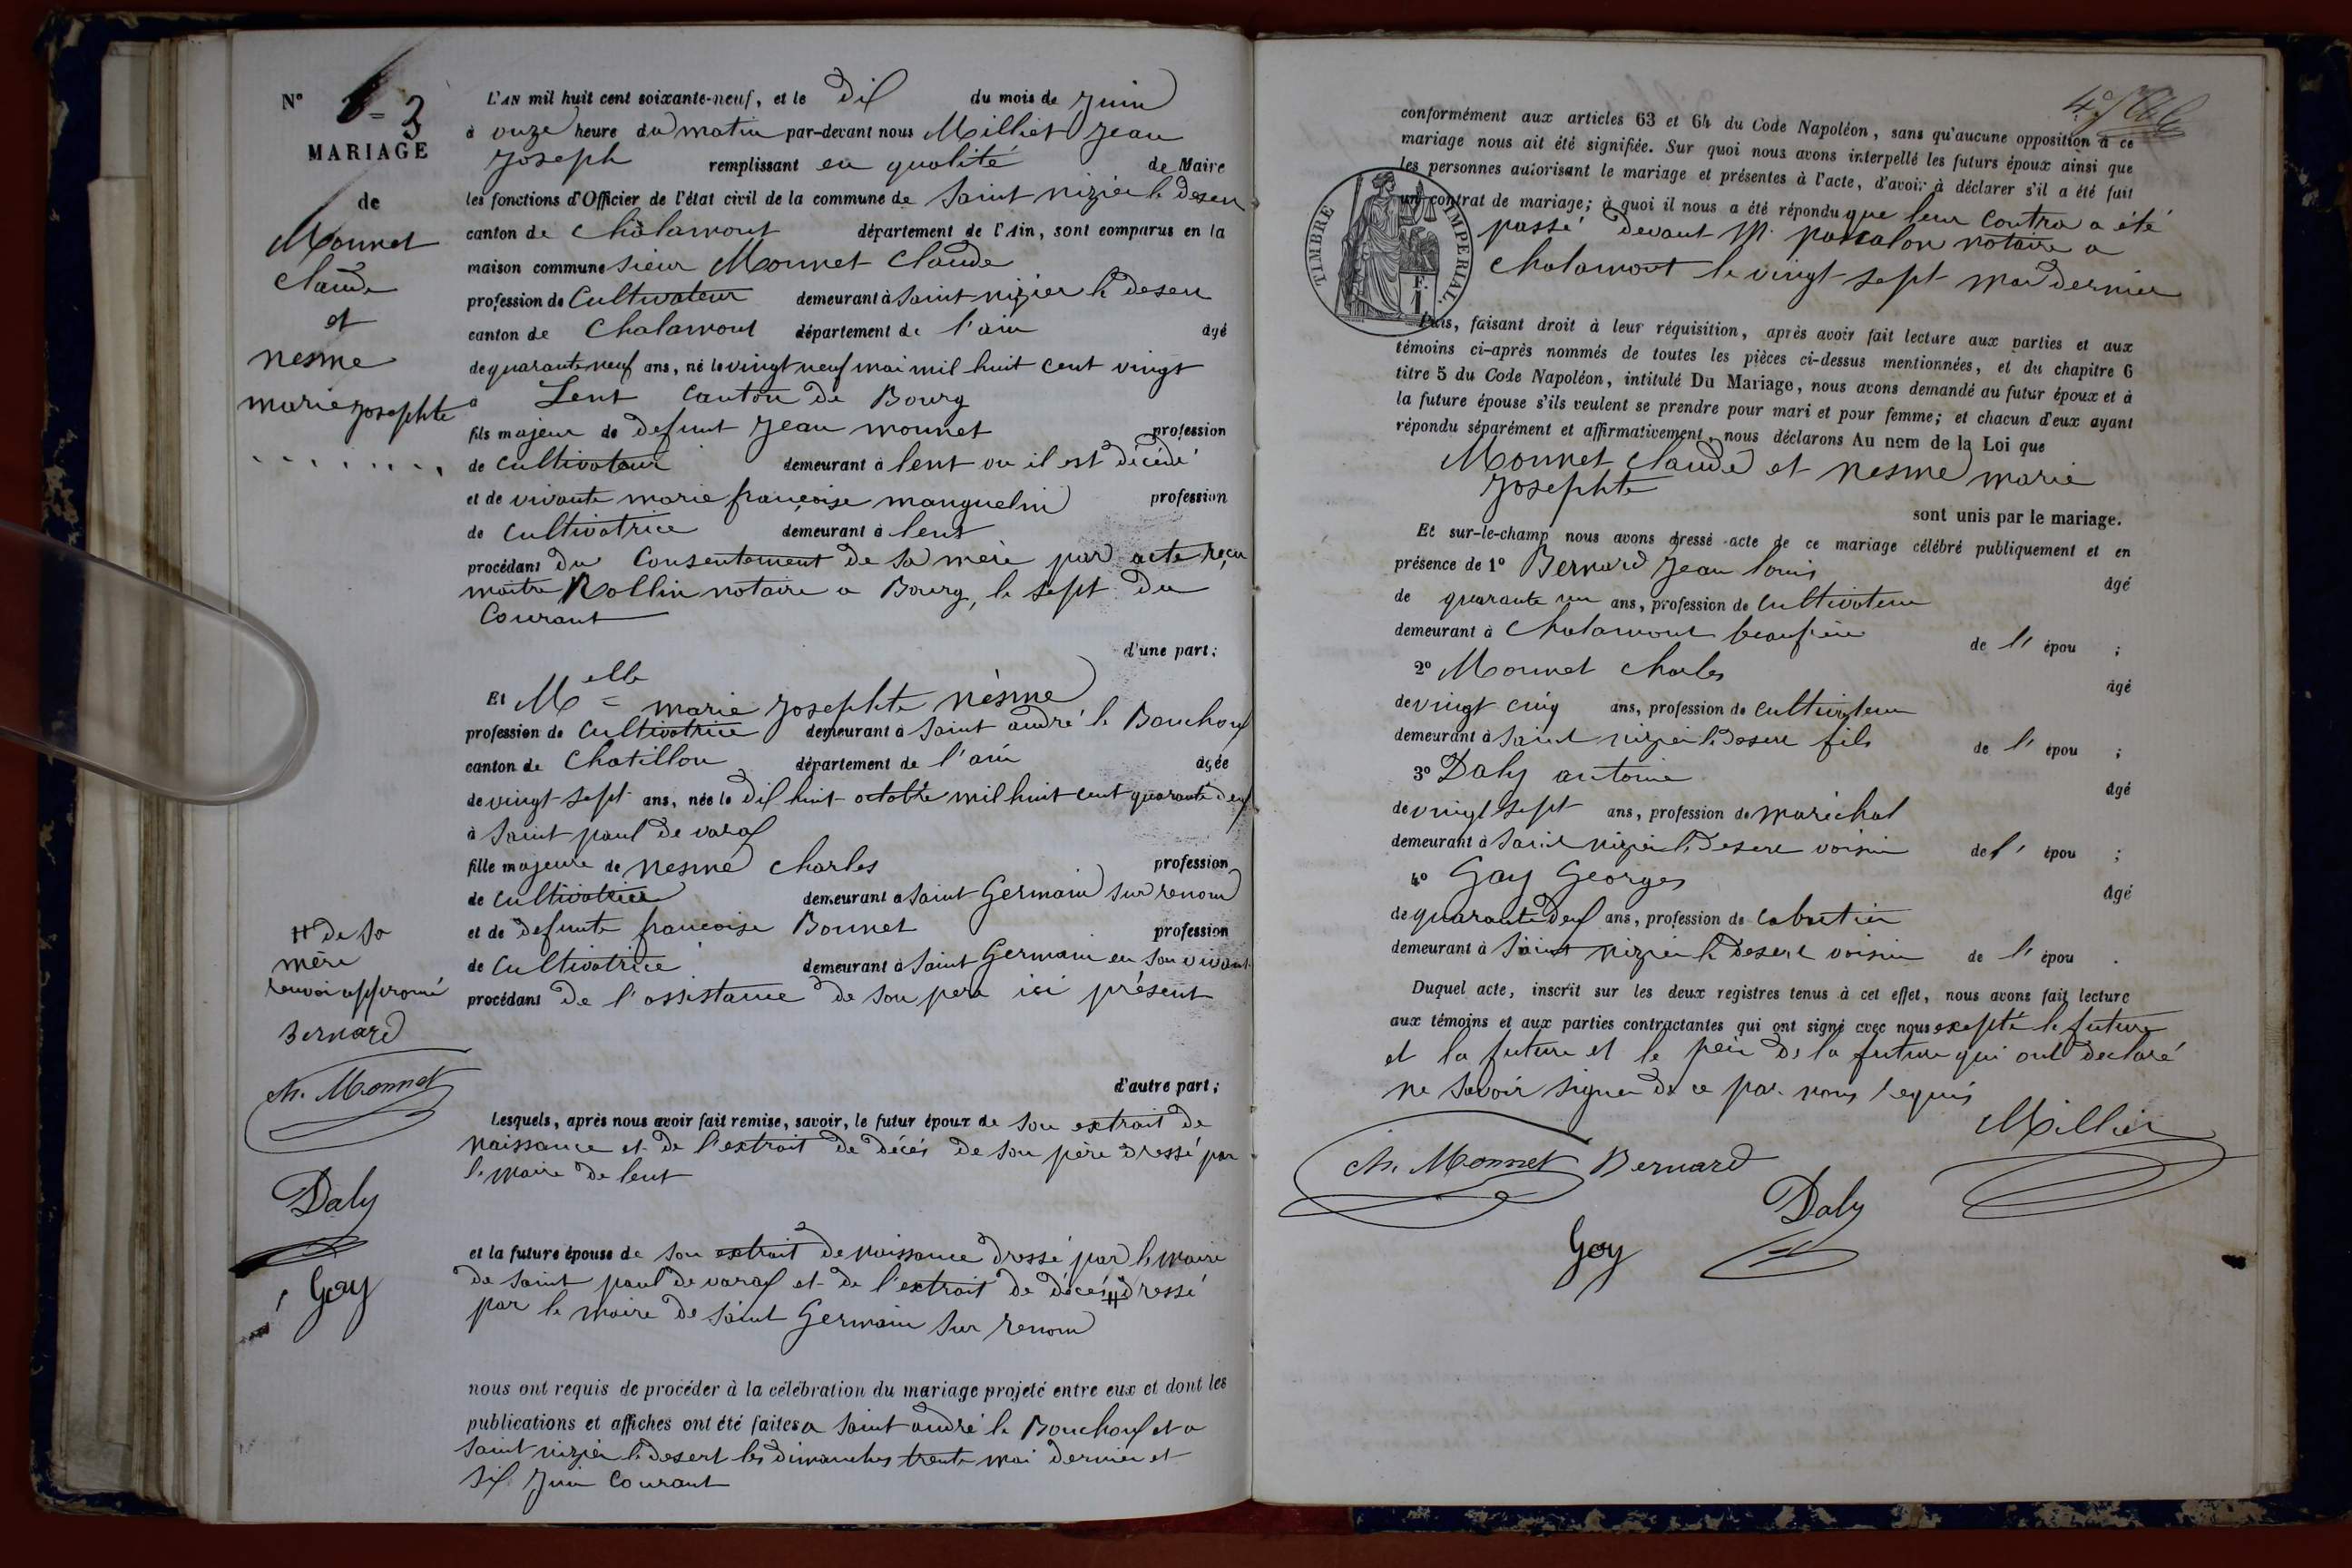 N° 3
MARIAGE
de
Monnet
Claude
et
nesme
marie josephte
L'AN mil huit cent soixante-neuf, et le dix du mois de juin
à onze heure du matin par-devant nous Milliet Jean
Joseph remplissant en qualité de Maire
les fonctions d'Officier de l'état civil de la commune de Saint nizier le desert
canton de Chalamont département de l'Ain, sont comparus en la
maison commune sieur Monnet Claude
profession de Cultivateur demeurant à Saint nizier le desert
canton de Chalamont département de l'ain âgé
de quarante neuf ans, né le vingt neuf mai mil huit cent vingt
à Lent Canton de Bourg
fils majeur de defunt Jean monnet profession
de cultivateur demeurant à lent ou il est décédé
et de vivante marie françoise manguelin profession
de cultivatrice demeurant à lent
procédant du Consentement de sa mère par acte reçu
maitre Rollin notaire a Bourg, le sept du
Courant
d'une part;
Et Melle marie josephte nèsme
profession de Cultivatrice demeurant à Saint andré le Bouchoux
canton de Chatillon département de l'ain âgée
de vingt sept ans, née le dix huit octobre mil huit cent quarante deux
à Saint paul de varax
fille majeure de nesme Charles profession
de Cultivatrice demeurant a Saint Germain sur renom
et de defunte francoise Bonnet profession
de Cultivatrice demeurant à Saint Germain en son vivant
procédant de l'assistance de son pere ici présent
d'autre part;
Lesquels, après nous avoir fait remise, savoir, le futur époux de son extrait de
naissance et de l'extrait de décés de son père dressé par
le maire de lent
et la future épouse de son extrait de naissance dressé par le maire
de Saint paul de varax et de l'extrait de décés # dressé
par le maire de Saint Germain sur renom
nous ont requis de procéder à la célébration du mariage projeté entre eux et dont les
publications et affiches ont été faites a Saint andré le Bouchoux et a
Saint nizier le desert les dimanches trente mai dernier et
six juin Courant
# de sa
mère
renvoi approuvé
Bernard
Ch. Monnet
Daly
Gay
conformément aux articles 63 et 64 du Code Napoléon, sans qu'aucune opposition à ce
mariage nous ait été signifiée. Sur quoi nous avons interpellé les futurs époux ainsi que
les personnes autorisant le mariage et présentes à l'acte, d'avoir à déclarer s'il a été fait
un contrat de mariage; à quoi il nous a été répondu que leur contra a été
passé devant M. notaire a
Chalamont le vingt sept mai dernier
TIMBRE IMPERIAL.
Puis, faisant droit à leur réquisition, après avoir fait lecture aux parties et aux
témoins ci-après nommés de toutes les pièces ci-dessus mentionnées, et du chapitre 6
titre 5 du Code Napoléon, intitulé Du Mariage, nous avons demandé au futur époux et à
la future épouse s'ils veulent se prendre pour mari et pour femme; et chacun d'eux ayant
répondu séparément et affirmativement, nous déclarons Au nom de la Loi que
Monnet Claude et nesme marie
josephte
sont unis par le mariage.
Et sur-le-champ nous avons dressé acte de ce mariage célébré publiquement et en
présence de 1° Bernard Jean louis âgé
de quarante un ans, profession de Cultivateur
demeurant à Chalamont beaufrère de l' épou ;
2° Monnet Charles âgé
de vingt cinq ans, profession de cultivateur
demeurant à Saint nizier le desert fils de l' épou ;
3° Daly antoine âgé
de vingt sept ans, profession de maréchal
demeurant à Saint nizier le desert voisin de l' épou ;
4° Gay Georges âgé
de quarante deux ans, profession de cabartier
demeurant à Saint nizier le desert voisin de l' épou .
Duquel acte, inscrit sur les deux registres tenus à cet effet, nous avons fait lecture
aux témoins et aux parties contractantes qui ont signé avec nous excepté le future
et la future et le père de la future qui ont declaré
ne savoir signer de ce par nous requis
Milliet
Ch. Monnet Bernard
Daly
Gay